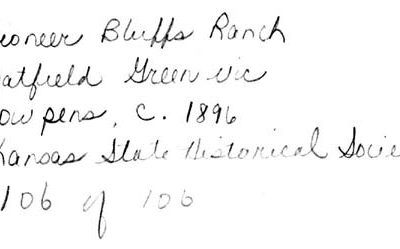 ioneer Bluffs Ranch
atfield Green vic
ow pens, c. 1896
Kansas State Historical Socie
106 of 106